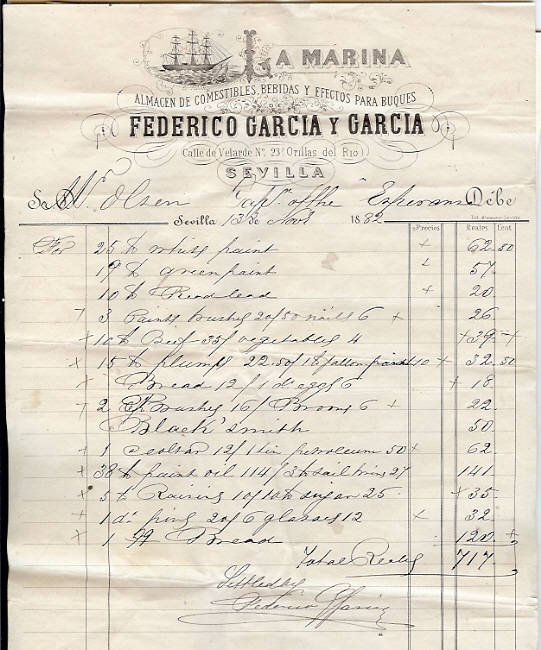 LA MARINA
ALMACEN DE COMESTIBLES, BEBIDAS Y EFECTOS PARA BUQUES
FEDERICO GARCIA Y GARCIA
Calle de Velarde No. 23 (Orillas del Rio)
SEVILLA
Sr Olsen Capt. of the Esperanza Debe
Sevilla 13 de Novb 1882
Precios Reales Cent
For 25 lb white paint 62 50
19 lb green paint 57
10 lb Read lead 20
3 Paints brushes 20/50 nails 6 26
10 lb Beef 35/ vegetables 4 39
15 lb plumps 22.50/ 18 gallon 10 32 50
Bread 12/1 dº eggs 6 18
2 Brushes 16/ Broom 6 22
Black smith 50
1 Coaltar 12/1 tin petroleum 50 62
38 lb paint oil 114/ 3 lb 27 141
5 lb Raisins 10/10 lb sugar 25 35
1 20/6 glasses 12 32
1 Bread 120
Total Reales 717
Settled by
Federico Garcia